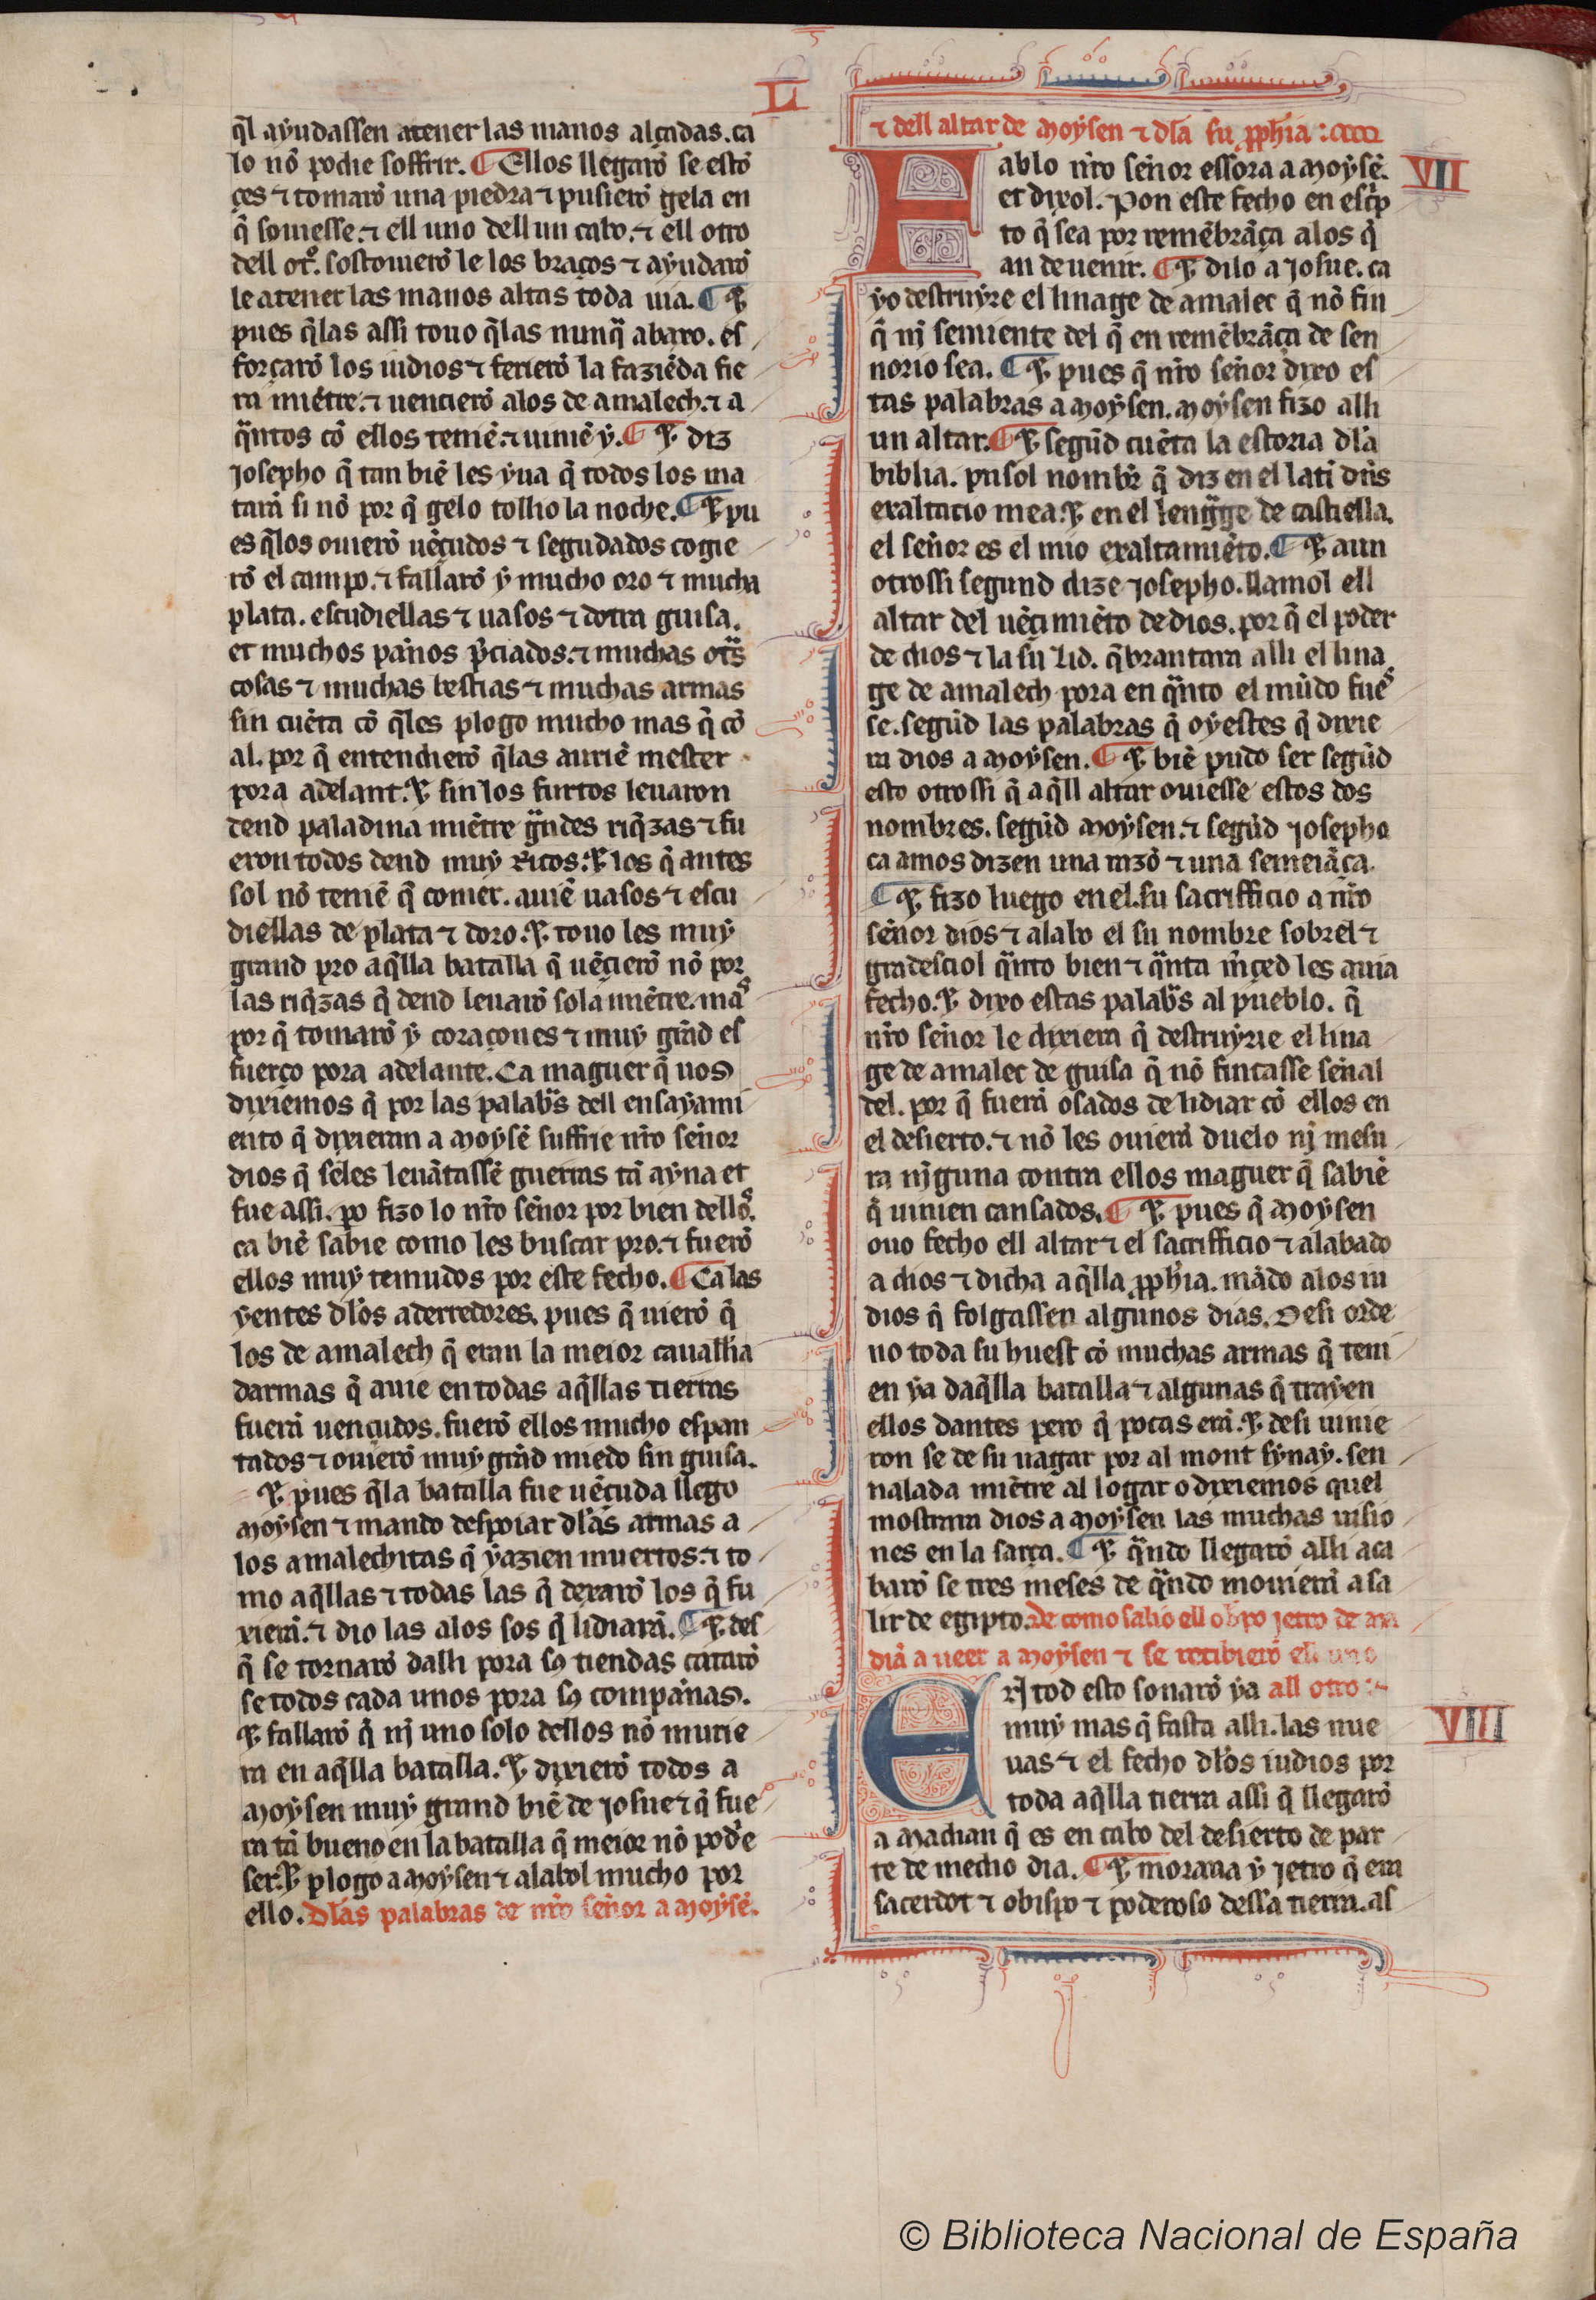 L
q̃l ayudassen atener las manos alçadas. ca
lo nõ podie soffrir. ¶ Ellos llegarõ se estõ
çes ⁊ tomarõ una piedra ⁊ pusierõ gela en
q̃ souiesse. ⁊ ell uno dell un cabo. ⁊ ell otro
dell otº. sostouierõ le los braços ⁊ ayudarõ
le atener las manos altas toda uia. ¶ ⁊
pues q̃las assi touo q̃las nunq̃ abaxo. es
forçarõ los iudios ⁊ ferierõ la faziẽda fie
ra miẽtre. ⁊ uencierõ alos de amalech. ⁊ a
q̃ntos cõ ellos teniẽ. ⁊ uiniẽ y. ¶ ⁊ diz
josepho q̃ tan biẽ les yua q̃ todos los ma
tarã si nõ por q̃ gelo tollio la noche. ¶ ⁊ pu
es q̃los ouierõ uẽçudos ⁊ segudados cogie
rõ el campo. ⁊ fallarõ y mucho oro ⁊ mucha
plata. escudiellas ⁊ uasos ⁊ dotra guisa.
et muchos paños p̃ciados. ⁊ muchas otãs
cosas ⁊ muchas bestias ⁊ muchas armas
sin cuẽta cõ q̃les plogo mucho mas q̃ cõ
al. por q̃ entendierõ q̃las auriẽ mester
pora adelant. ⁊ sin los furtos leuaron
dend paladina miẽtre g̃ndes riq̃zas ⁊ fu
eron todos dend muy Ricos. ⁊ los q̃ antes
sol nõ teniẽ q̃ comer. auiẽ uasos ⁊ escu
diellas de plata ⁊ doro. ⁊ touo les muy
grand pro aq̃lla batalla q̃ uẽcierõ nõ por
las riq̃zas q̃ dend leuarõ sola miẽtre. mas
por q̃ tomarõ y coraçones ⁊ muy grãd es
fuerço pora adelante. Ca maguer q̃ uos
dixiemos q̃ por las palabs̃ dell ensayami
ento q̃ dixieran a moysẽ suffrie nr̃o señor
dios q̃ seles leuãtassẽ guerras tã ayna et
fue assi. po fizo lo nr̃o señor por bien dellos.
ca biẽ sabie como les buscar pro. ⁊ fuerõ
ellos muy temudos por este fecho. ¶ Ca las
yentes dlos aderredores. pues q̃ uierõ q̃
los de amalech q̃ eran la meior cauallia
darmas q̃ auie en todas aq̃llas tierras
fuerã uençudos. fuerõ ellos mucho espan
tados ⁊ ouierõ muy grãd miedo sin guisa.
⁊ pues q̃la batalla fue uẽçuda llego
moysen ⁊ mando despoiar dlas armas a
los amalechitas q̃ yazien muertos. ⁊ to
mo aq̃llas ⁊ todas las q̃ dexarõ los q̃ fu
xierã. ⁊ dio las alos sos q̃ lidiarã. ¶ ⁊ des
q̃ se tornarõ dalli pora sꝯ tiendas catarõ
se todos cada unos pora sꝯ compañas.
⁊ fallarõ q̃ nj uno solo dellos nõ murie
ra en aq̃lla batalla. ⁊ dixierõ todos a
moysen muy grand biẽ de josue ⁊ q̃ fue
ra tã bueno en la batalla q̃ meior nõ podie
ser. ⁊ plogo a moysen ⁊ alabol mucho por
ello. Dlas palabras de nr̃o señor a moysẽ.
⁊ dell altar de moysen ⁊ dla su p̃phia :
VII
Fablo nr̃o señor essora a moysẽ.
et dixol. Pon este fecho en escp̃
to q̃ sea por remẽbrãça alos q̃
an de uenir. ¶ ⁊ dilo a josue. ca
yo destruyre el linage de amalec q̃ nõ fin
q̃ nj semiente del q̃ en remẽbrãça de sen
norio sea. ¶ ⁊ pues q̃ nr̃o señor dixo es
tas palabras a moysen. moysen fizo alli
un altar. ¶ ⁊ segũd cuẽta la estoria dla
biblia. pusol nombr̃ q̃ diz en el latĩ dñs
exaltacio mea. ⁊ en el leng̃ge de castiella.
el señor es el mio exaltamiẽto. ¶ ⁊ aun
otrossi segund dize josepho. llamol ell
altar del uẽcimiẽto de dios. por q̃ el poder
de dios ⁊ la su lid. q̃brantara alli el lina
ge de amalech pora en q̃nto el mũdo fues
se. segũd las palabras q̃ oyestes q̃ dixie
ra dios a moysen. ¶ ⁊ biẽ pudo ser segũd
esto otrossi q̃ aq̃ll altar ouiesse estos dos
nombres. segũd moysen. ⁊ segũd josepho
ca amos dizen una razõ ⁊ una semeiãça.
¶ ⁊ fizo luego en el. su sacrifficio a nr̃o
señor dios ⁊ alabo el su nombre sobrel ⁊
gradesciol q̃nto bien ⁊ q̃nta m̃çed les auia
fecho. ⁊ dixo estas palabs̃ al pueblo. q̃
nr̃o señor le dixiera q̃ destruyrie el lina
ge de amalec de guisa q̃ nõ fincasse señal
del. por q̃ fuerã osados de lidiar cõ ellos en
el desierto. ⁊ nõ les ouierã duelo nj mesu
ra nj̃guna contra ellos maguer q̃ sabiẽ
q̃ uinien cansados. ¶ ⁊ pues q̃ moysen
ouo fecho ell altar ⁊ el sacrifficio ⁊ alabado
a dios ⁊ dicha aq̃lla p̃phia. mãdo alos iu
dios q̃ folgassen algunos dias. Desi orde
no toda su huest cõ muchas armas q̃ teni
en ya daq̃lla batalla ⁊ algunas q̃ trayen
ellos dantes pero q̃ pocas erã. ⁊ desi uinie
ron se de su uagar por al mont synay. sen
nalada miẽtre al logar o dixiemos quel
mostrara dios a moysen las muchas uisio
nes en la sarça. ¶ ⁊ q̃ndo llegarõ alli aca
barõ se tres meses de q̃ndo mouierã a sa
lir de egipto. De como salio ell obpo jetro de ma
diã a ueer a moysen ⁊ se recibierõ ell uno
all otro :~
VIII
En tod esto sonarõ ya
muy mas q̃ fasta alli. las nue
uas ⁊ el fecho dlos iudios por
toda aq̃lla tierra assi q̃ llegarõ
a madian q̃ es en cabo del desierto de par
te de medio dia. ¶ ⁊ moraua y jetro q̃ era
sacerdot ⁊ obispo ⁊ poderoso dessa tierra. as
© Biblioteca Nacional de España